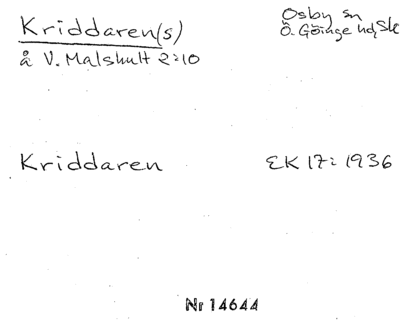 Kriddaren(s)
å V. Malshult 2:10
Osby sn
Ö. Göinge hd, Sk
Kriddaren
EK 17: 1936
Nr 14644